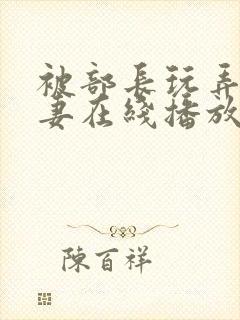 被部長玩弄
妻在綫播放
陳百祥